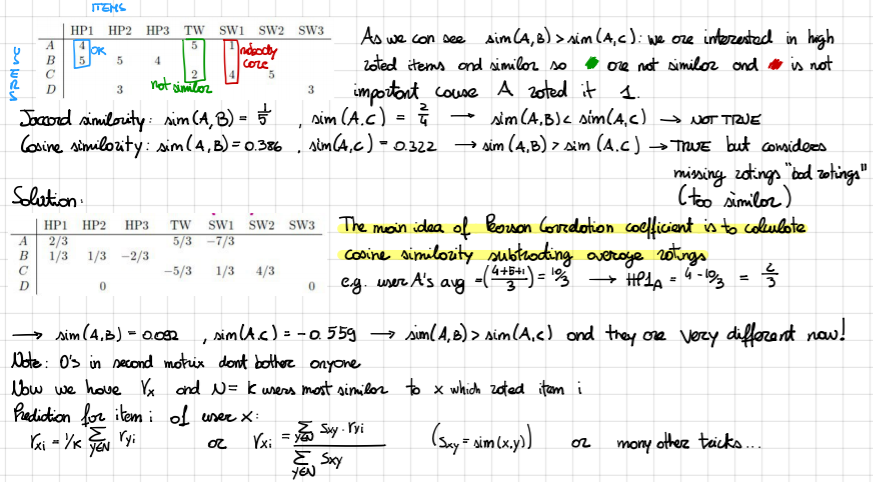 ITEMS
USERS
HP1 HP2 HP3 TW SW1 SW2 SW3
A 4 5 1
B 5 5 4
C 2 4 5
D 3 3
OK
not similar
nobody care
As we can see sim(A,B) > sim(A,C): we are interested in high
rated items and similar so are not similar and is not
important cause A rated it 1.
Jaccard similarity: sim(A,B) = 1/5 , sim(A.C) = 2/4 → sim(A,B) < sim(A,C) → NOT TRUE
Cosine similarity: sim(A,B) = 0.386 , sim(A,C) = 0.322 → sim(A,B) > sim(A.C) → TRUE but considers
missing ratings "bad ratings"
(too similar)
Solution:
HP1 HP2 HP3 TW SW1 SW2 SW3
A 2/3 5/3 −7/3
B 1/3 1/3 −2/3
C −5/3 1/3 4/3
D 0 0
The main idea of Pearson Correlation coefficient is to calculate
cosine similarity subtracting average ratings
e.g. user A's avg = (4+5+1/3) = 10/3 → HP1_A = 4 - 10/3 = 2/3
→ sim(A,B) = 0.092 , sim(A.C) = -0.559 → sim(A,B) > sim(A,C) and they are very different now!
Note: 0's in second matrix dont bother anyone
Now we have r_x and N = K users most similar to x which rated item i
Prediction for item i of user x:
r_xi = 1/K ∑_{y∈N} r_yi or r_xi = ∑_{y∈N} S_xy · r_yi / ∑_{y∈N} S_xy (S_xy = sim(x,y)) or many other tricks...